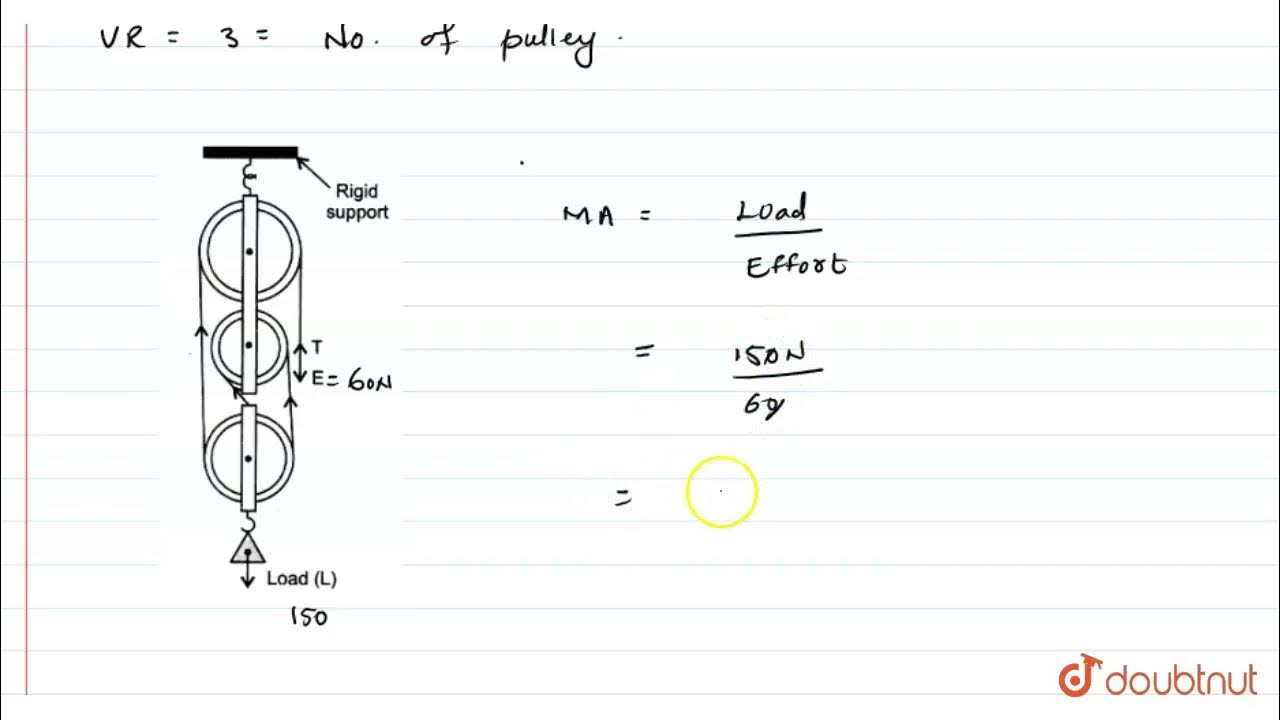 VR = 3 = No. of pulley.
Rigid
support
MA = Load
Effort
= 150N
60
T
E = 60N
=
Load (L)
150
doubtnut